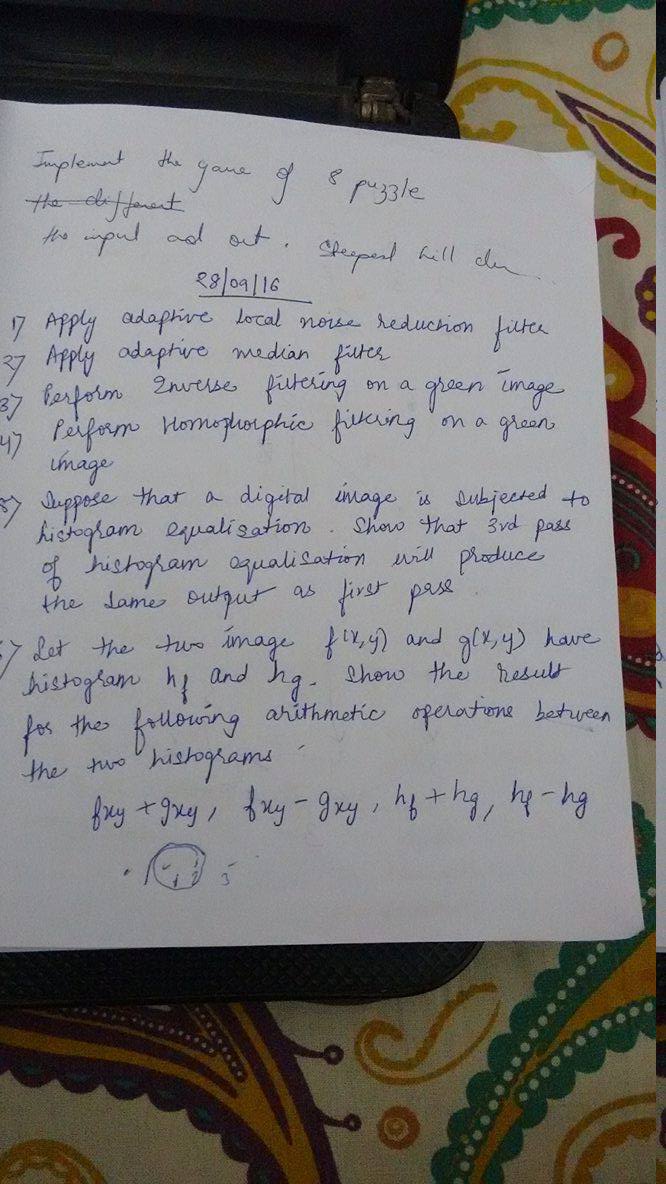 Implement the game of 8 puzzle
the different
the input and out. Steepest hill
28/09/16
1) Apply adaptive local noise reduction filter
2) Apply adaptive median filter
3) Perform Inverse filtering on a green image
4) Perform Homomorphic filtering on a green
image
Suppose that a digital image is subjected to
histogram equalisation. Show that 3rd pass
of histogram equalisation will produce
the same output as first pass.
Let the two image f(x,y) and g(x,y) have
histogram hf and hg. Show the result
for the following arithmetic operations between
the two histograms
fxy + gxy, fxy - gxy, hf + hg, hf - hg
1 2 3